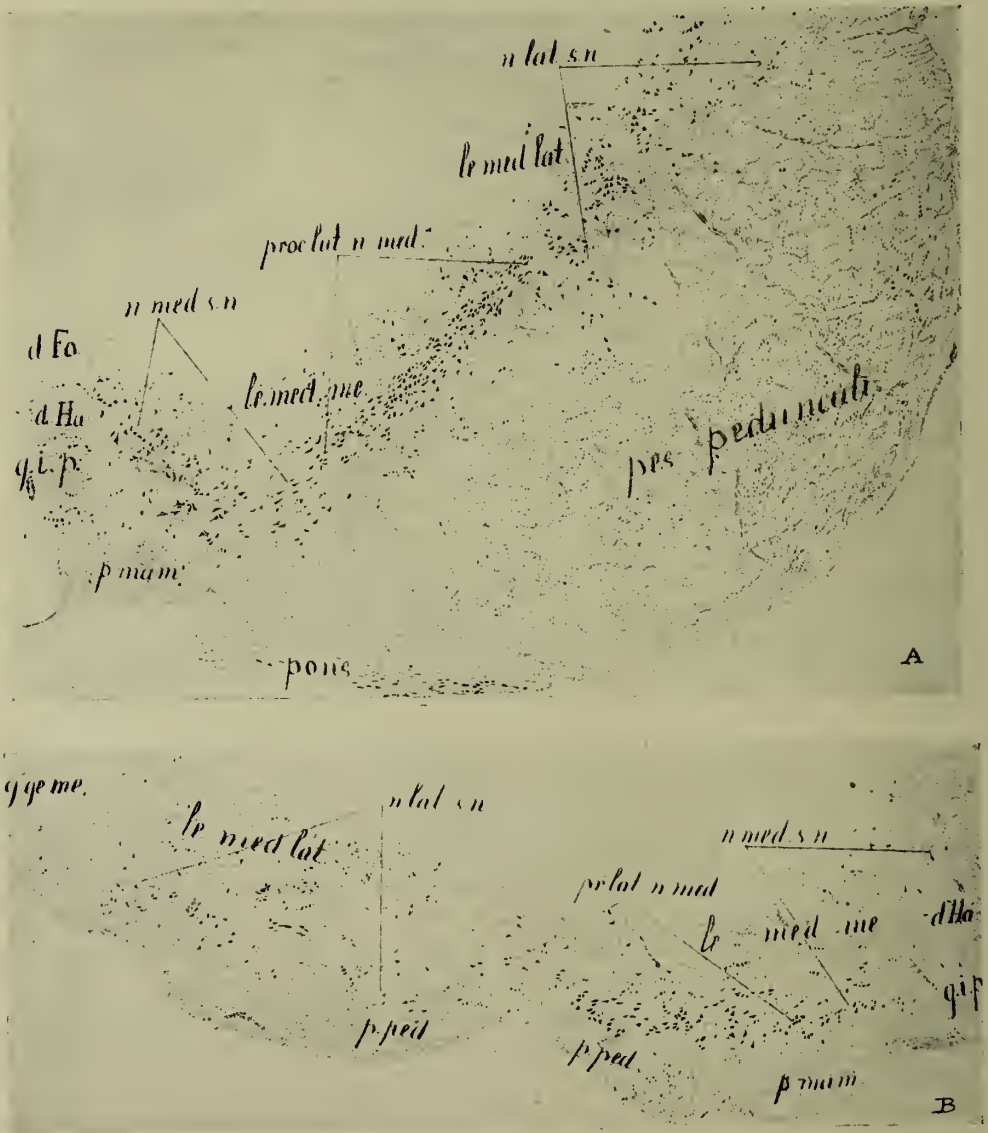 n lat. s.n
le med lat.
proc lat n med.
n med s.n
d Fo.
le.med.me
d.Ha
g.i.p.
pes pedunculi
p mam.
pons
A
g ge me.
n lat s n
le med lat.
n med. s n
pr lat n med
le med me
d Ha
g.i.p
p.ped
p ped.
p mam.
B